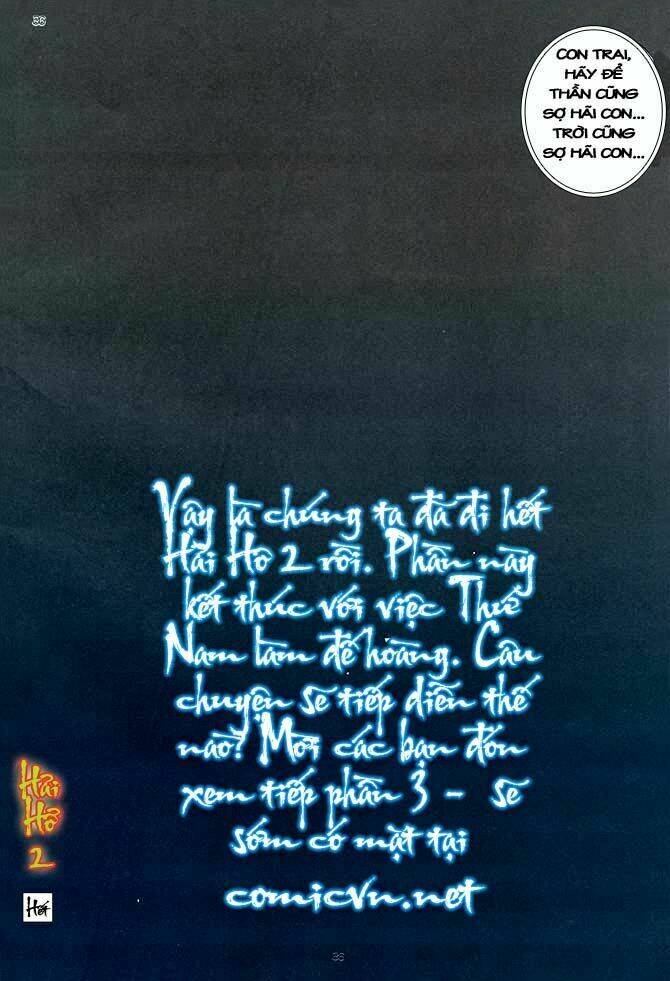 36
CON TRAI,
HÃY ĐỂ
THẦN CŨNG
SỢ HÃI CON...
TRỜI CŨNG
SỢ HÃI CON...
Vậy là chúng ta đã đi hết
Hải Hổ 2 rồi. Phần này
kết thúc với việc Thứ
Nam làm đế hoàng. Câu
chuyện sẽ tiếp diễn thế
nào? Mời các bạn đón
xem tiếp phần 3 - sẽ
sớm có mặt tại
comicvn.net
Hải
Hổ
2
Hết
36